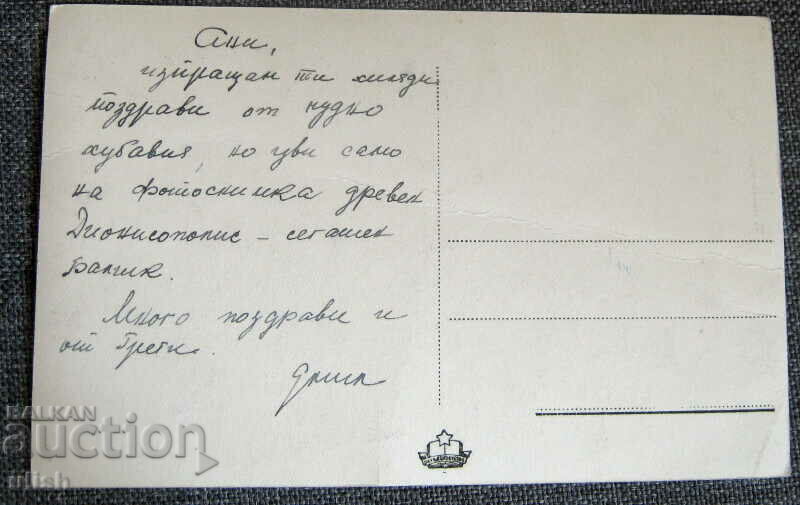 Ани,
изпращам ти хиляди
поздрави от чудно
хубавия, но уви само
на фотоснимка древен
Дионисополис – сегашен
Балчик.
Много поздрави и
от Грети.
BALKAN
auction
ulish